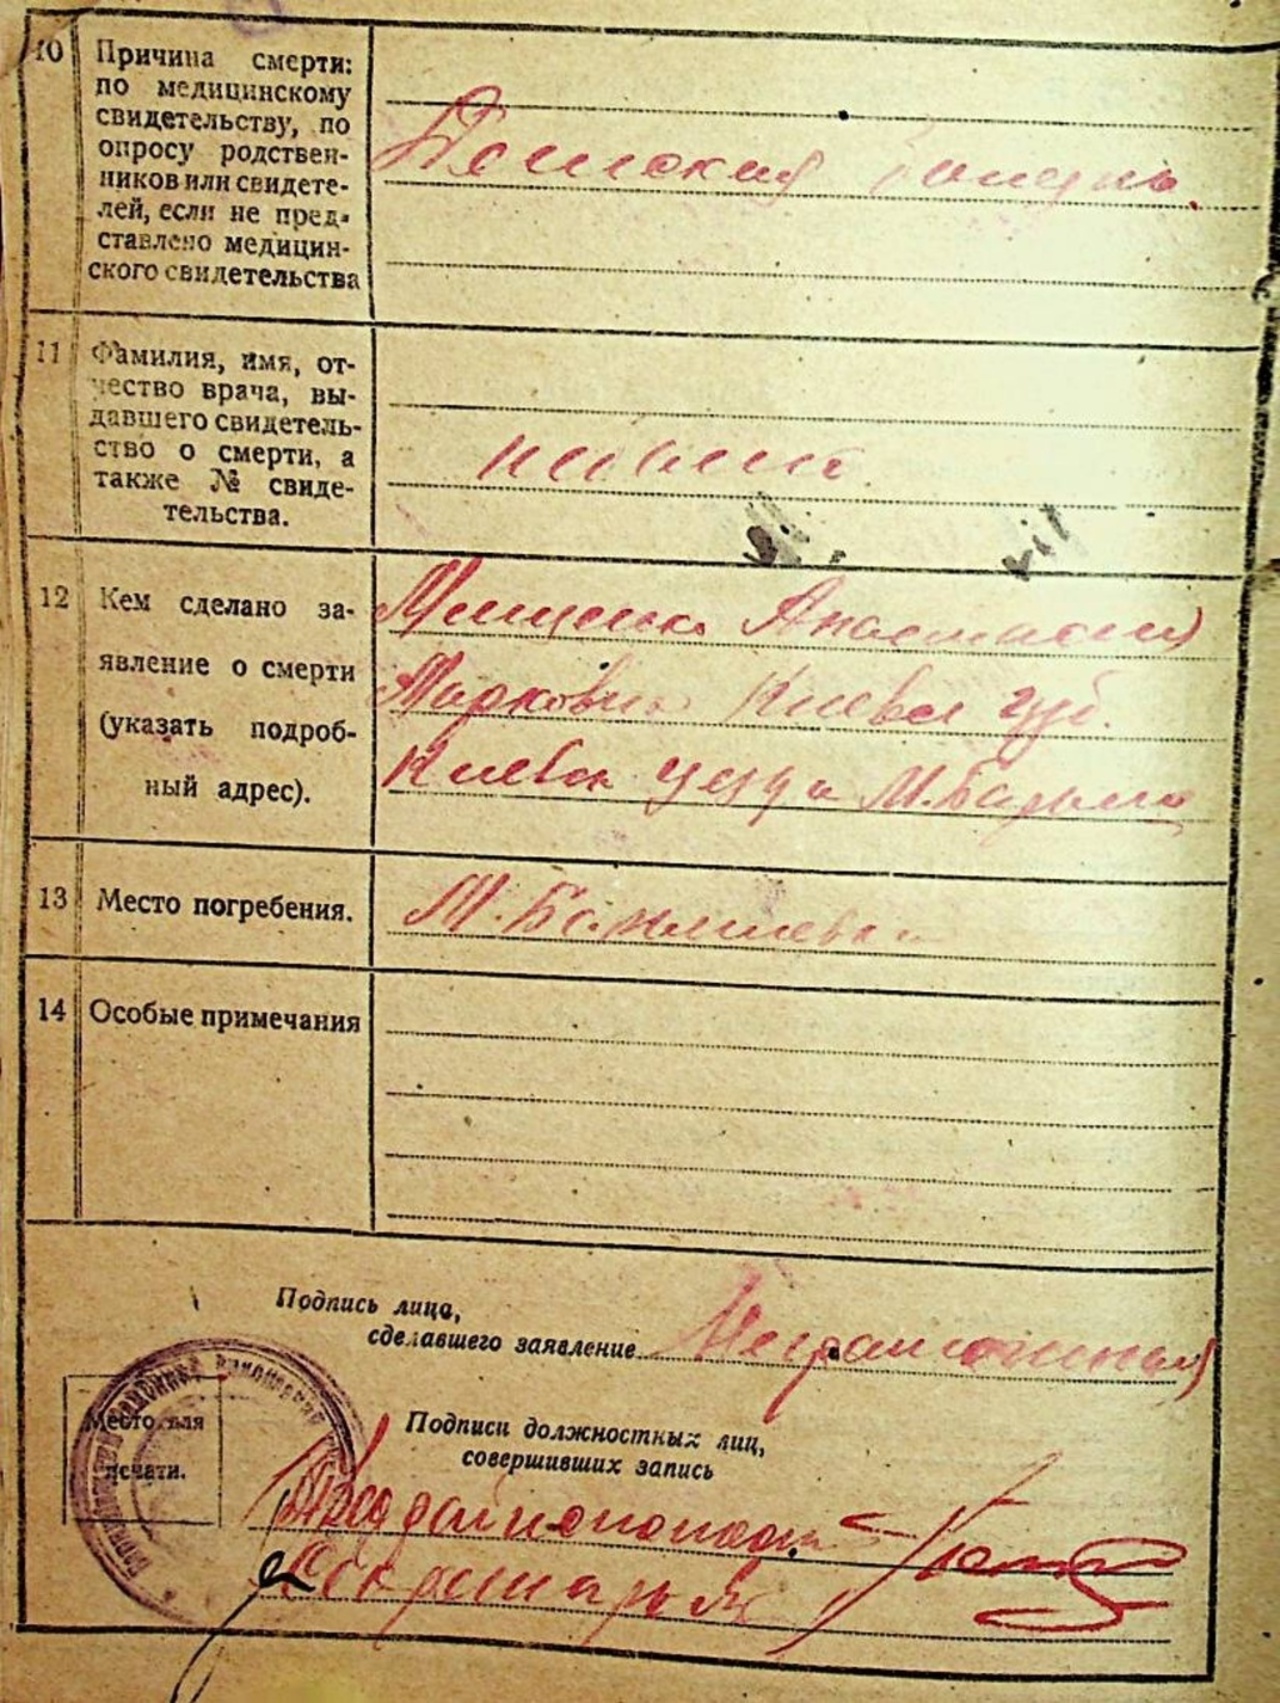 10 Причина смерти:
по медицинскому
свидетельству, по
опросу родствен-
ников или свидете-
лей, если не пред-
ставлено медицин-
ского свидетельства
Детская
11 Фамилия, имя, от-
чество врача, вы-
давшего свидетель-
ство о смерти, а
также № свиде-
тельства.
12 Кем сделано за-
явление о смерти
(указать подроб-
ный адрес).
Мищенко Анастасия
Марковна Киевск губ.
Киевск уезда М.
13 Место погребения.
М.
14 Особые примечания
Подпись лица,
сделавшего заявление
Неграмотный
Место для
печати.
Подписи должностных лиц,
совершивших запись
Секретарь